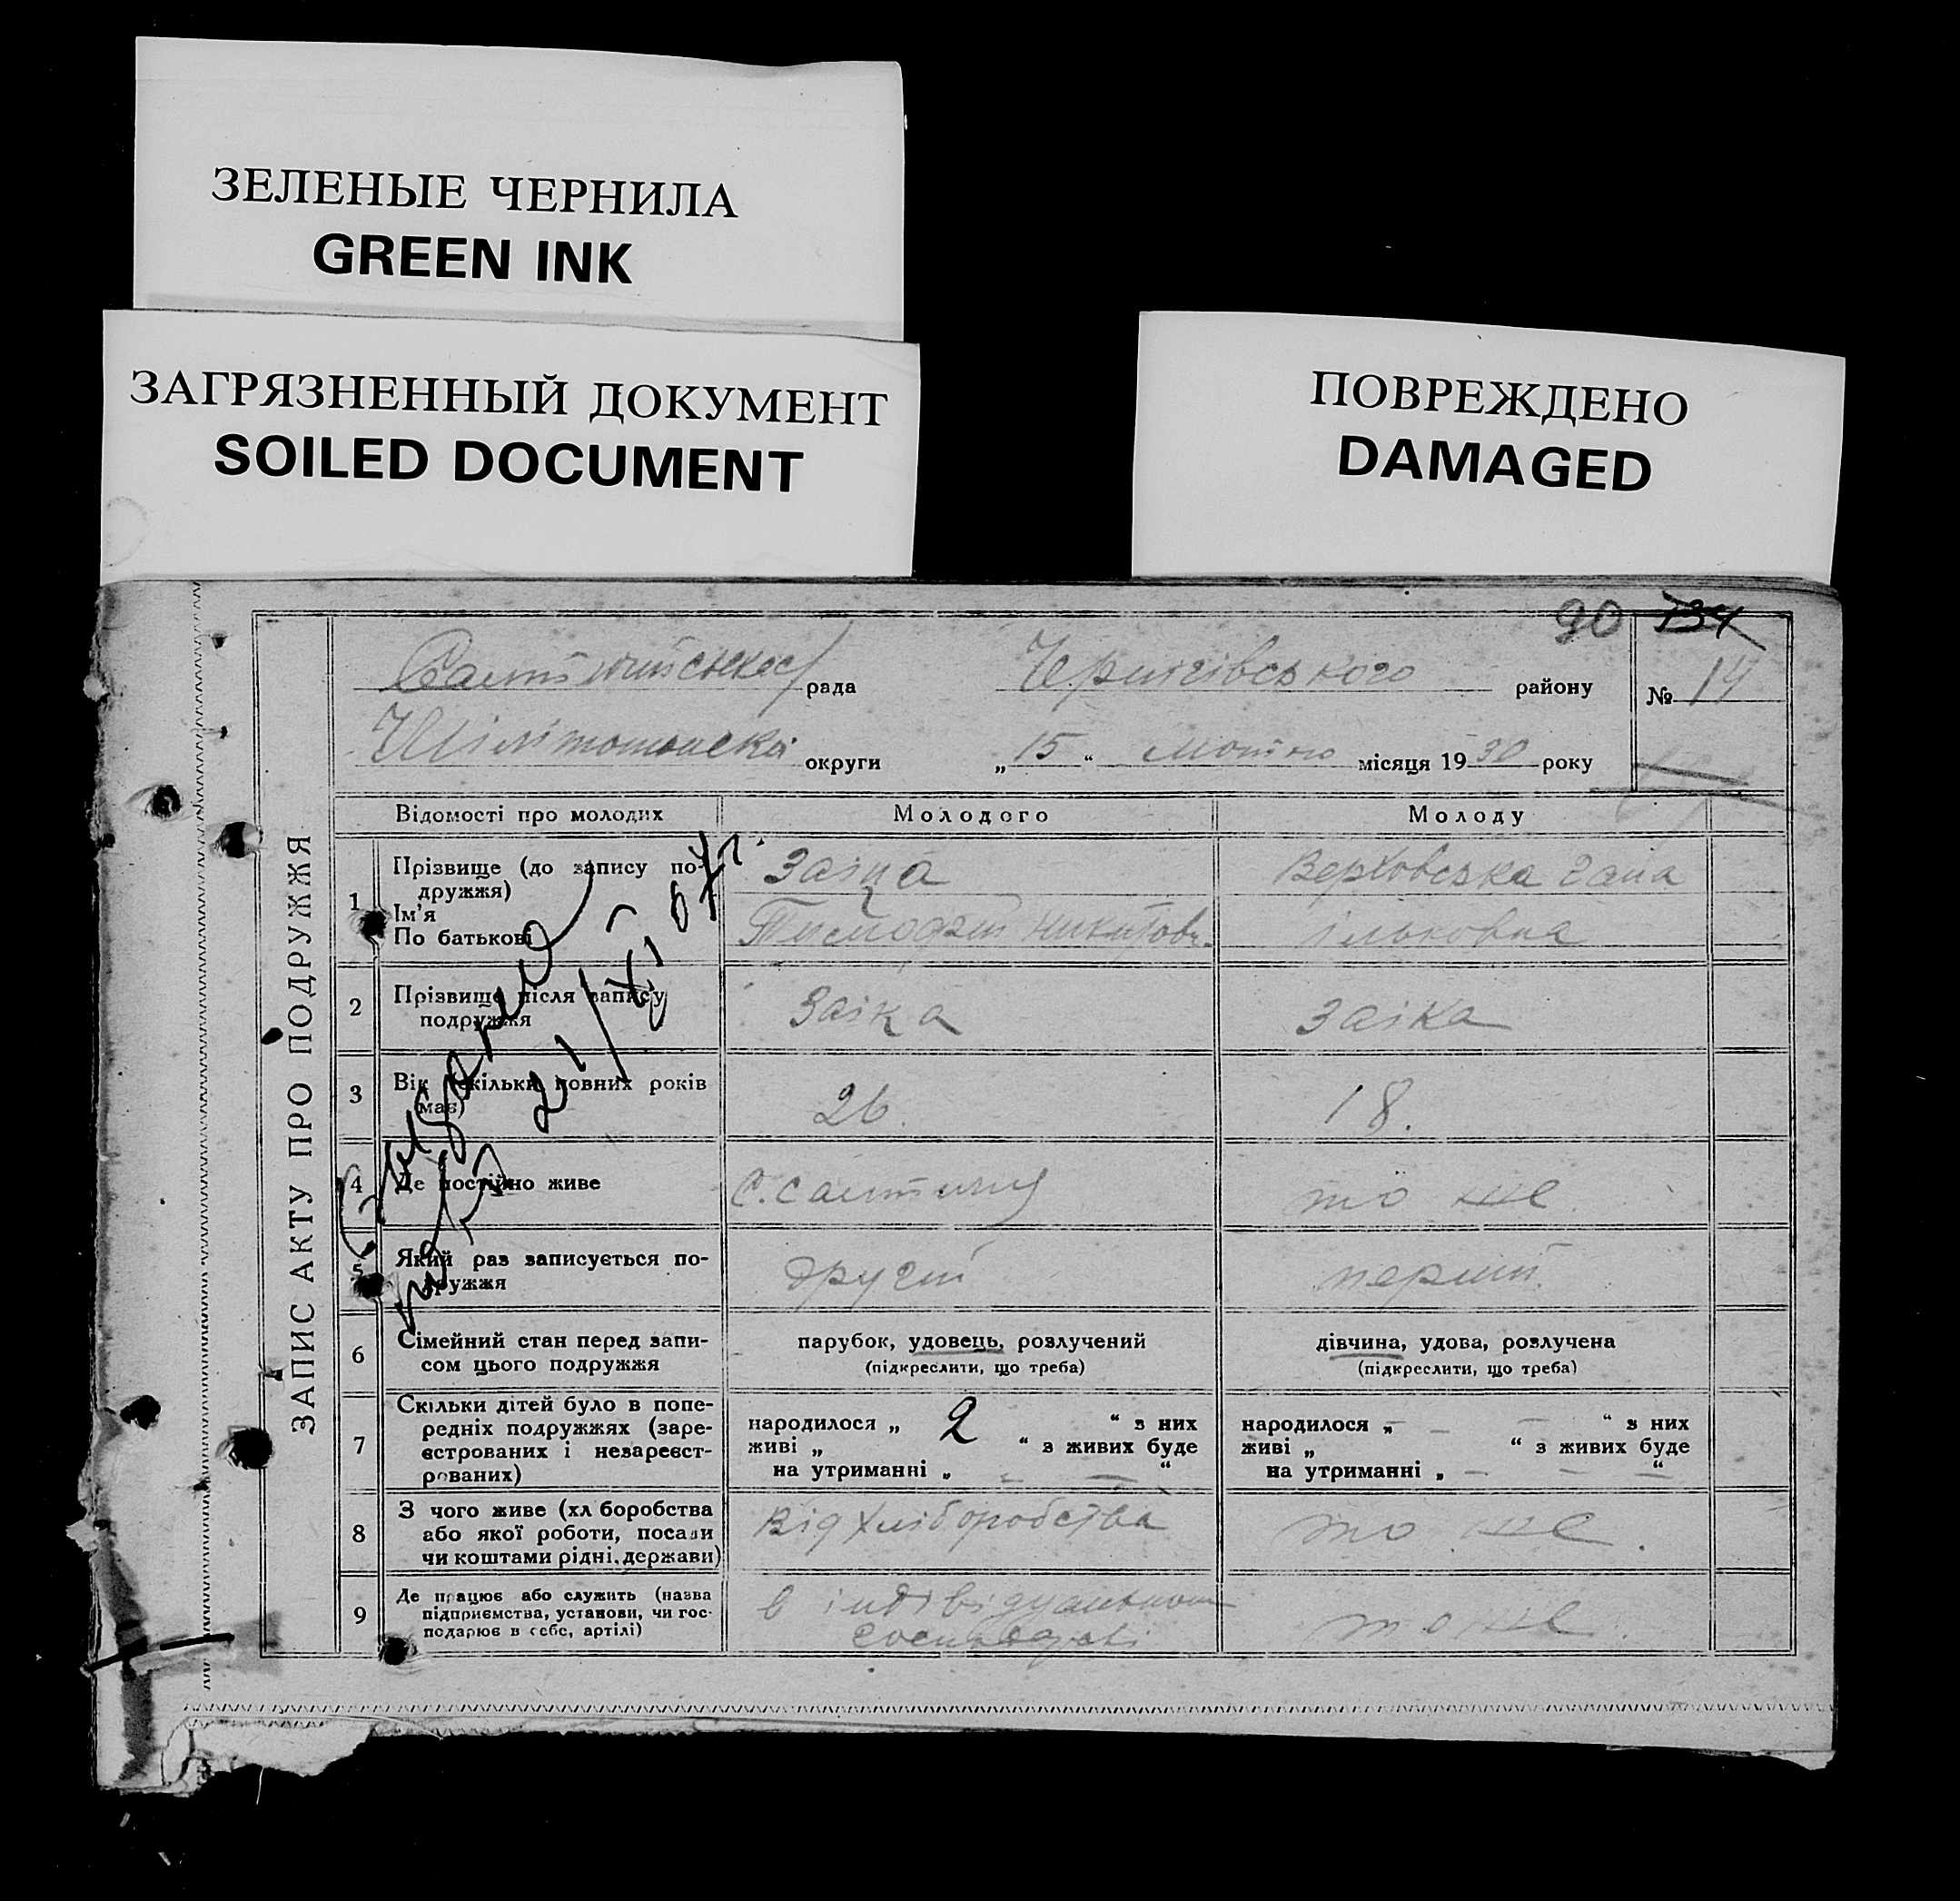 ЗЕЛЕНЫЕ ЧЕРНИЛА
GREEN INK
ЗАГРЯЗНЕННЫЙ ДОКУМЕНТ
SOILED DOCUMENT
ПОВРЕЖДЕНО
DAMAGED
90 734
рада Чернігівського району № 14
округи „15“ місяця 1930 року
ЗАПИС АКТУ ПРО ПОДРУЖЖЯ
Відомості про молодих Молодого Молоду
1 Прізвище (до запису по-
дружжя)
Ім'я
По батькові
Заіка
Никитови
Верховська Гана
ільковна
2 Прізвище після запису
подружжя
Заіка
Заіка
3 Вік (скільки повних років
має)
26.
18.
4 Де постійно живе
с.
то же
5 Який раз записується по-
дружжя
другий
перший.
6 Сімейний стан перед запи-
сом цього подружжя
парубок, удовець, розлучений
(підкреслити, що треба)
дівчина, удова, розлучена
(підкреслити, що треба)
7 Скільки дітей було в попе-
редніх подружжях (заре-
єстрованих і незареєст-
рованих)
народилося „ 2 “ з них
живі „ “ з живих буде
на утриманні „ — — “
народилося „ — — “ з них
живі „ “ з живих буде
на утриманні „ — — “
8 З чого живе (хл боробства
або якої роботи, посади
чи коштами рідні, держави)
від хліборобства
то же.
9 Де працює або служить (назва
підприємства, установи, чи гос-
подарює в себе, артілі)
в
то же.
21/XI 67 г.